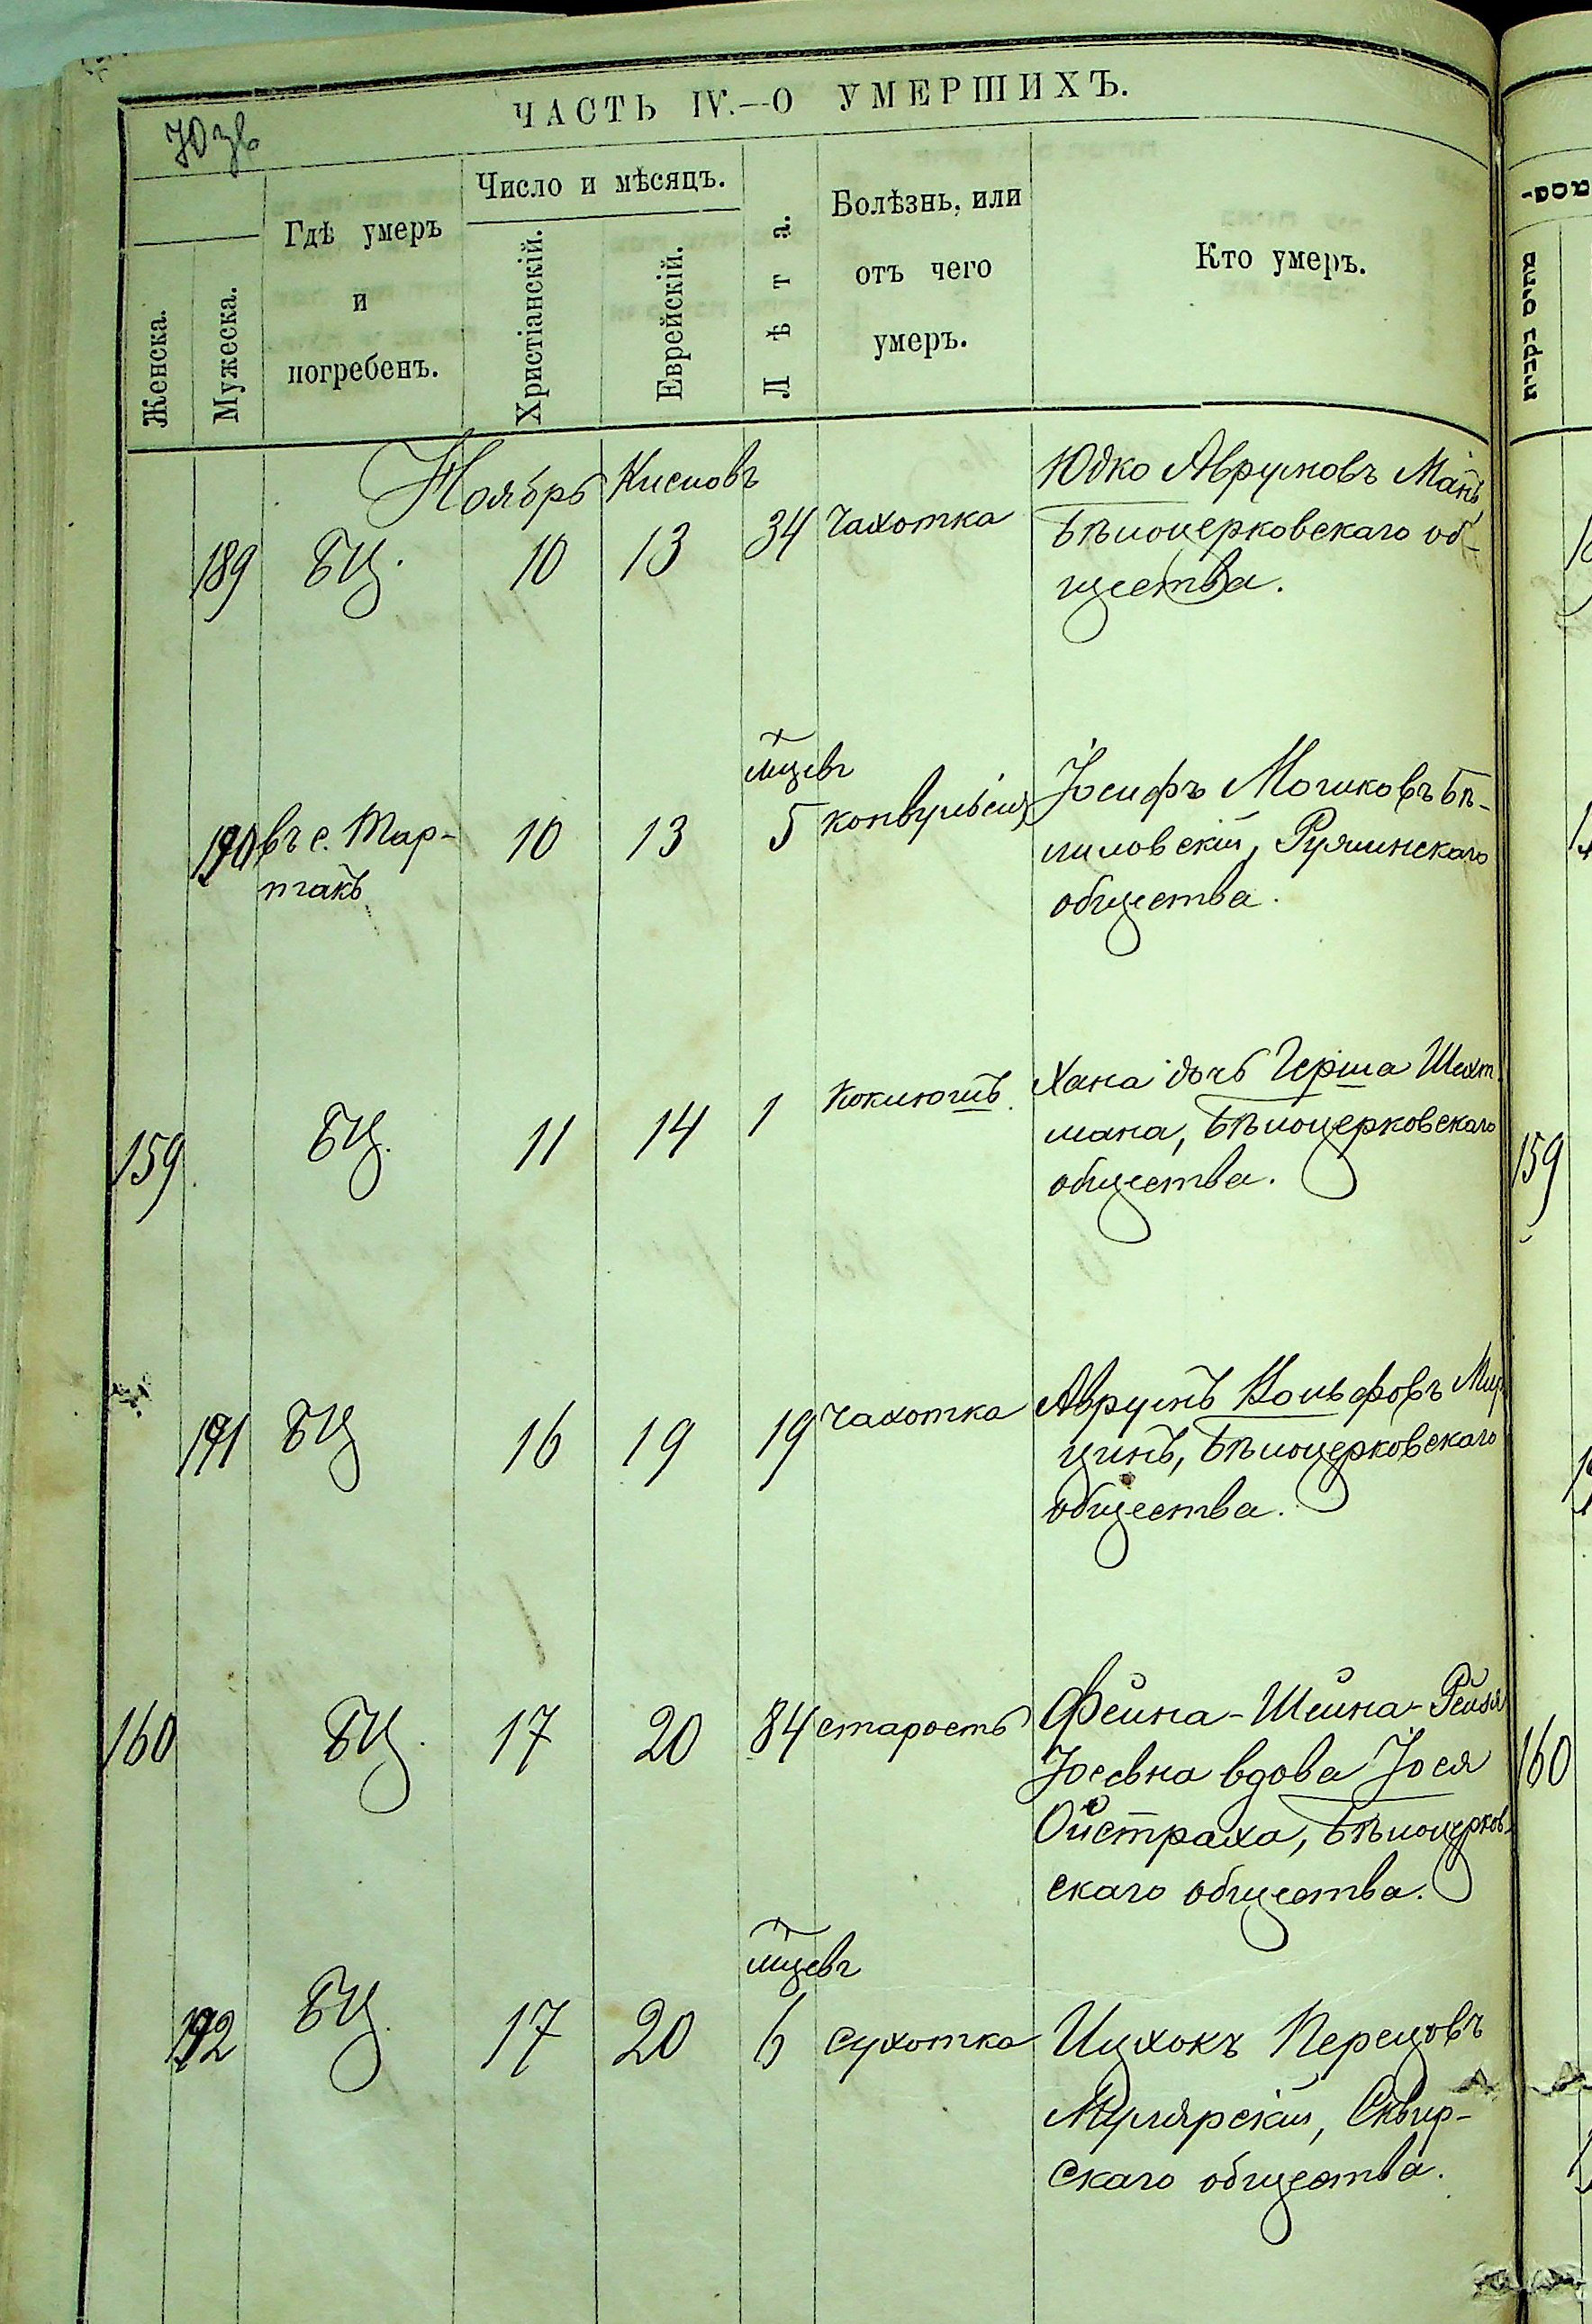 ЧАСТЬ IV.—О УМЕРШИХЪ.
Женска.
Мужеска.
Гдѣ умеръ
и
погребенъ.
Число и мѣсяцъ.
Христіанскій.
Еврейскій.
Лѣта.
Болѣзнь, или
отъ чего
умеръ.
Кто умеръ.
Ноябрь Кисловъ
189 БЦ. 10 13 34 Чахотка
Юдко Аврумовъ Мань
Бѣлоцерковскаго об-
щества.
мцевъ
190 въ с. Мар- 10 13 5 конвульсія
Іосифъ Мошковъ Бѣ-
ликовскій, Ружинскаго
общества.
159 БЦ. 11 14 1 Коклюшъ.
Хана дочь Герша Шехт-
мана, Бѣлоцерковскаго
общества.
191 БЦ 16 19 19 Чахотка
Аврумъ Вольфовъ
цинъ, Бѣлоцерковскаго
общества.
160 БЦ. 17 20 84 старость
Фейна-Шейна-Рейзя
Іосевна вдова Іося
Ойстраха, Бѣлоцерков-
скаго общества.
мцевъ
192 БЦ. 17 20 6 сухотка
Ицхокъ Перецовъ
Мулярскій, Сквир-
скаго общества.
159
160